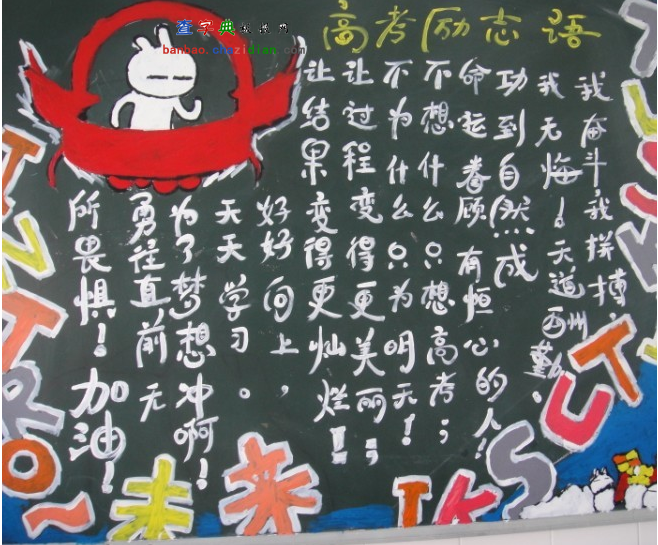 查字典板报网
banbao.chazidian.com
高考励志语
我奋斗,我拼搏,
我无悔!天道酬勤。
功到自然成
命运眷顾有恒心的人!
不想什么只想高考;
不为什么只为明天!
让过程变得更美丽;
让结果变得更灿烂!
好好向上,
天天学习。
为了梦想冲啊!
勇往直前无
所畏惧!加油!
未来